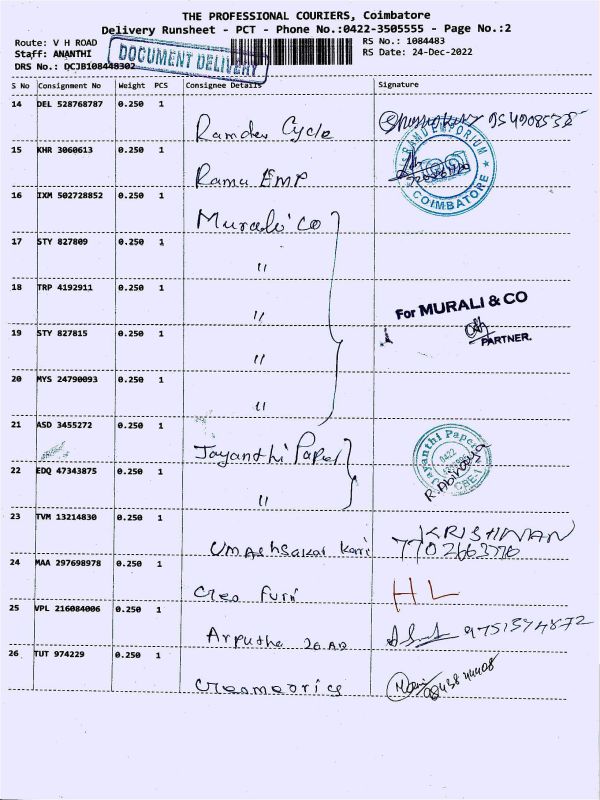 THE PROFESSIONAL COURIERS, Coimbatore
Delivery Runsheet - PCT - Phone No.:0422-3505555 - Page No.:2
Route: V H ROAD RS No.: 1084483
Staff: ANANTHI RS Date: 24-Dec-2022
DRS No.: DCJB108448302
DOCUMENT DELIVERY
S No Consignment No Weight PCS Consignee Details Signature
14 DEL 528768787 0.250 1
Ramdev Cycle
15 KHR 3060613 0.250 1
RAMU EMPORIUM
COIMBATORE
Ramu EMP
16 IXM 502728852 0.250 1
Murali CO
17 STY 827809 0.250 1
"
18 TRP 4192911 0.250 1
"
For MURALI & CO
PARTNER.
19 STY 827815 0.250 1
"
20 MYS 24790093 0.250 1
"
21 ASD 3455272 0.250 1
Jayanthi Paper
Jayanthi Paper
0422
CBE-1
22 EDQ 47343875 0.250 1
"
23 TVM 13214830 0.250 1
KRISHNAN
24 MAA 297698978 0.250 1
Creo Furn
HL
25 VPL 216084006 0.250 1
Arputha
9751374872
26 TUT 974229 0.250 1